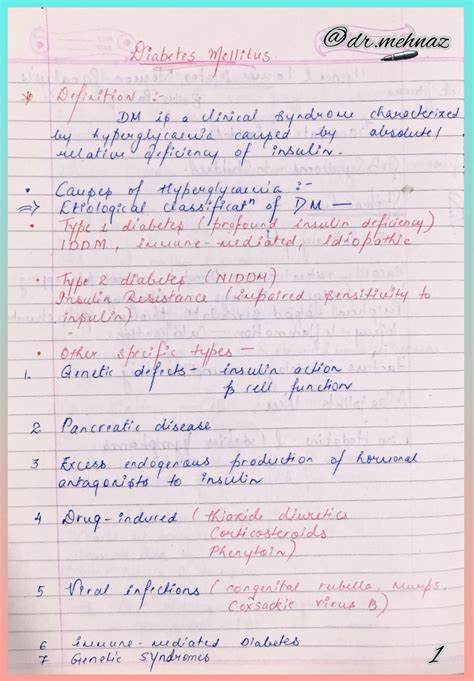 @dr.mehnaz
Diabetes Mellitus
* Definition :-
DM is a clinical syndrome characterized
by hyperglycaemia caused by absolute/
relative deficiency of insulin.
• Causes of Hyperglycaemia :-
⇒ Etiological classificatn of DM —
• Type 1 diabetes (profound insulin deficiency)
IDDM, immune-mediated, idiopathic
• Type 2 diabetes (NIDDM)
Insulin Resistance (impaired sensitivity to
insulin)
• Other specific types —
1. Genetic defects - insulin action
β cell function
2 Pancreatic disease
3 Excess endogenous production of hormonal
antagonists to insulin
4 Drug-induced (thiazide diuretics
Corticosteroids
Phenytoin)
5 Viral infections (congenital rubella, Mumps,
Coxsackie virus B)
6 immune-mediated Diabetes
7 Genetic syndromes
1